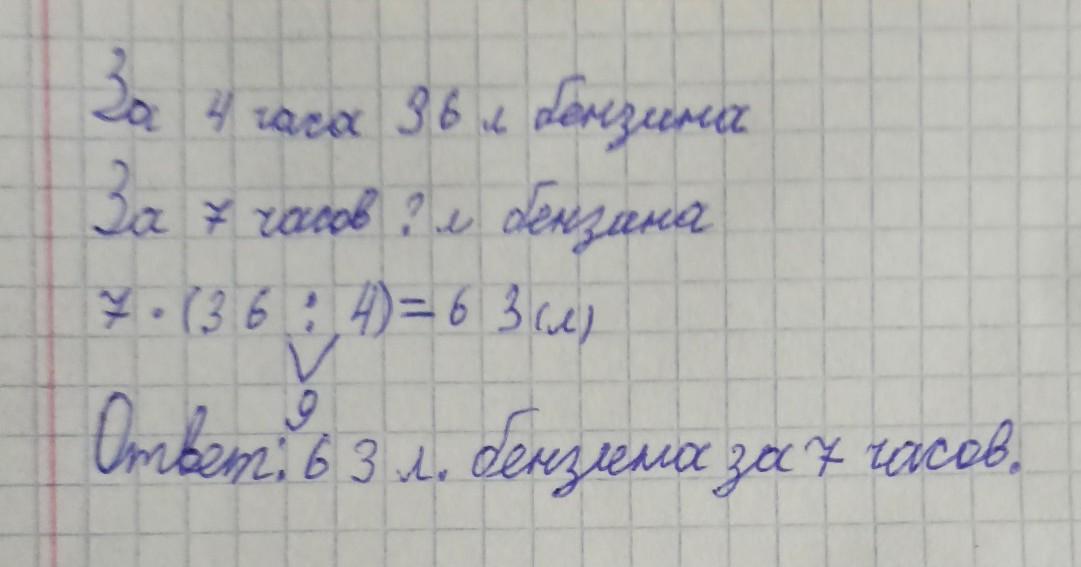 За 4 часа 36 л бензина
За 7 часов ? л бензина
7 · (36 : 4) = 63 (л)
9
Ответ: 63 л. бензина за 7 часов.